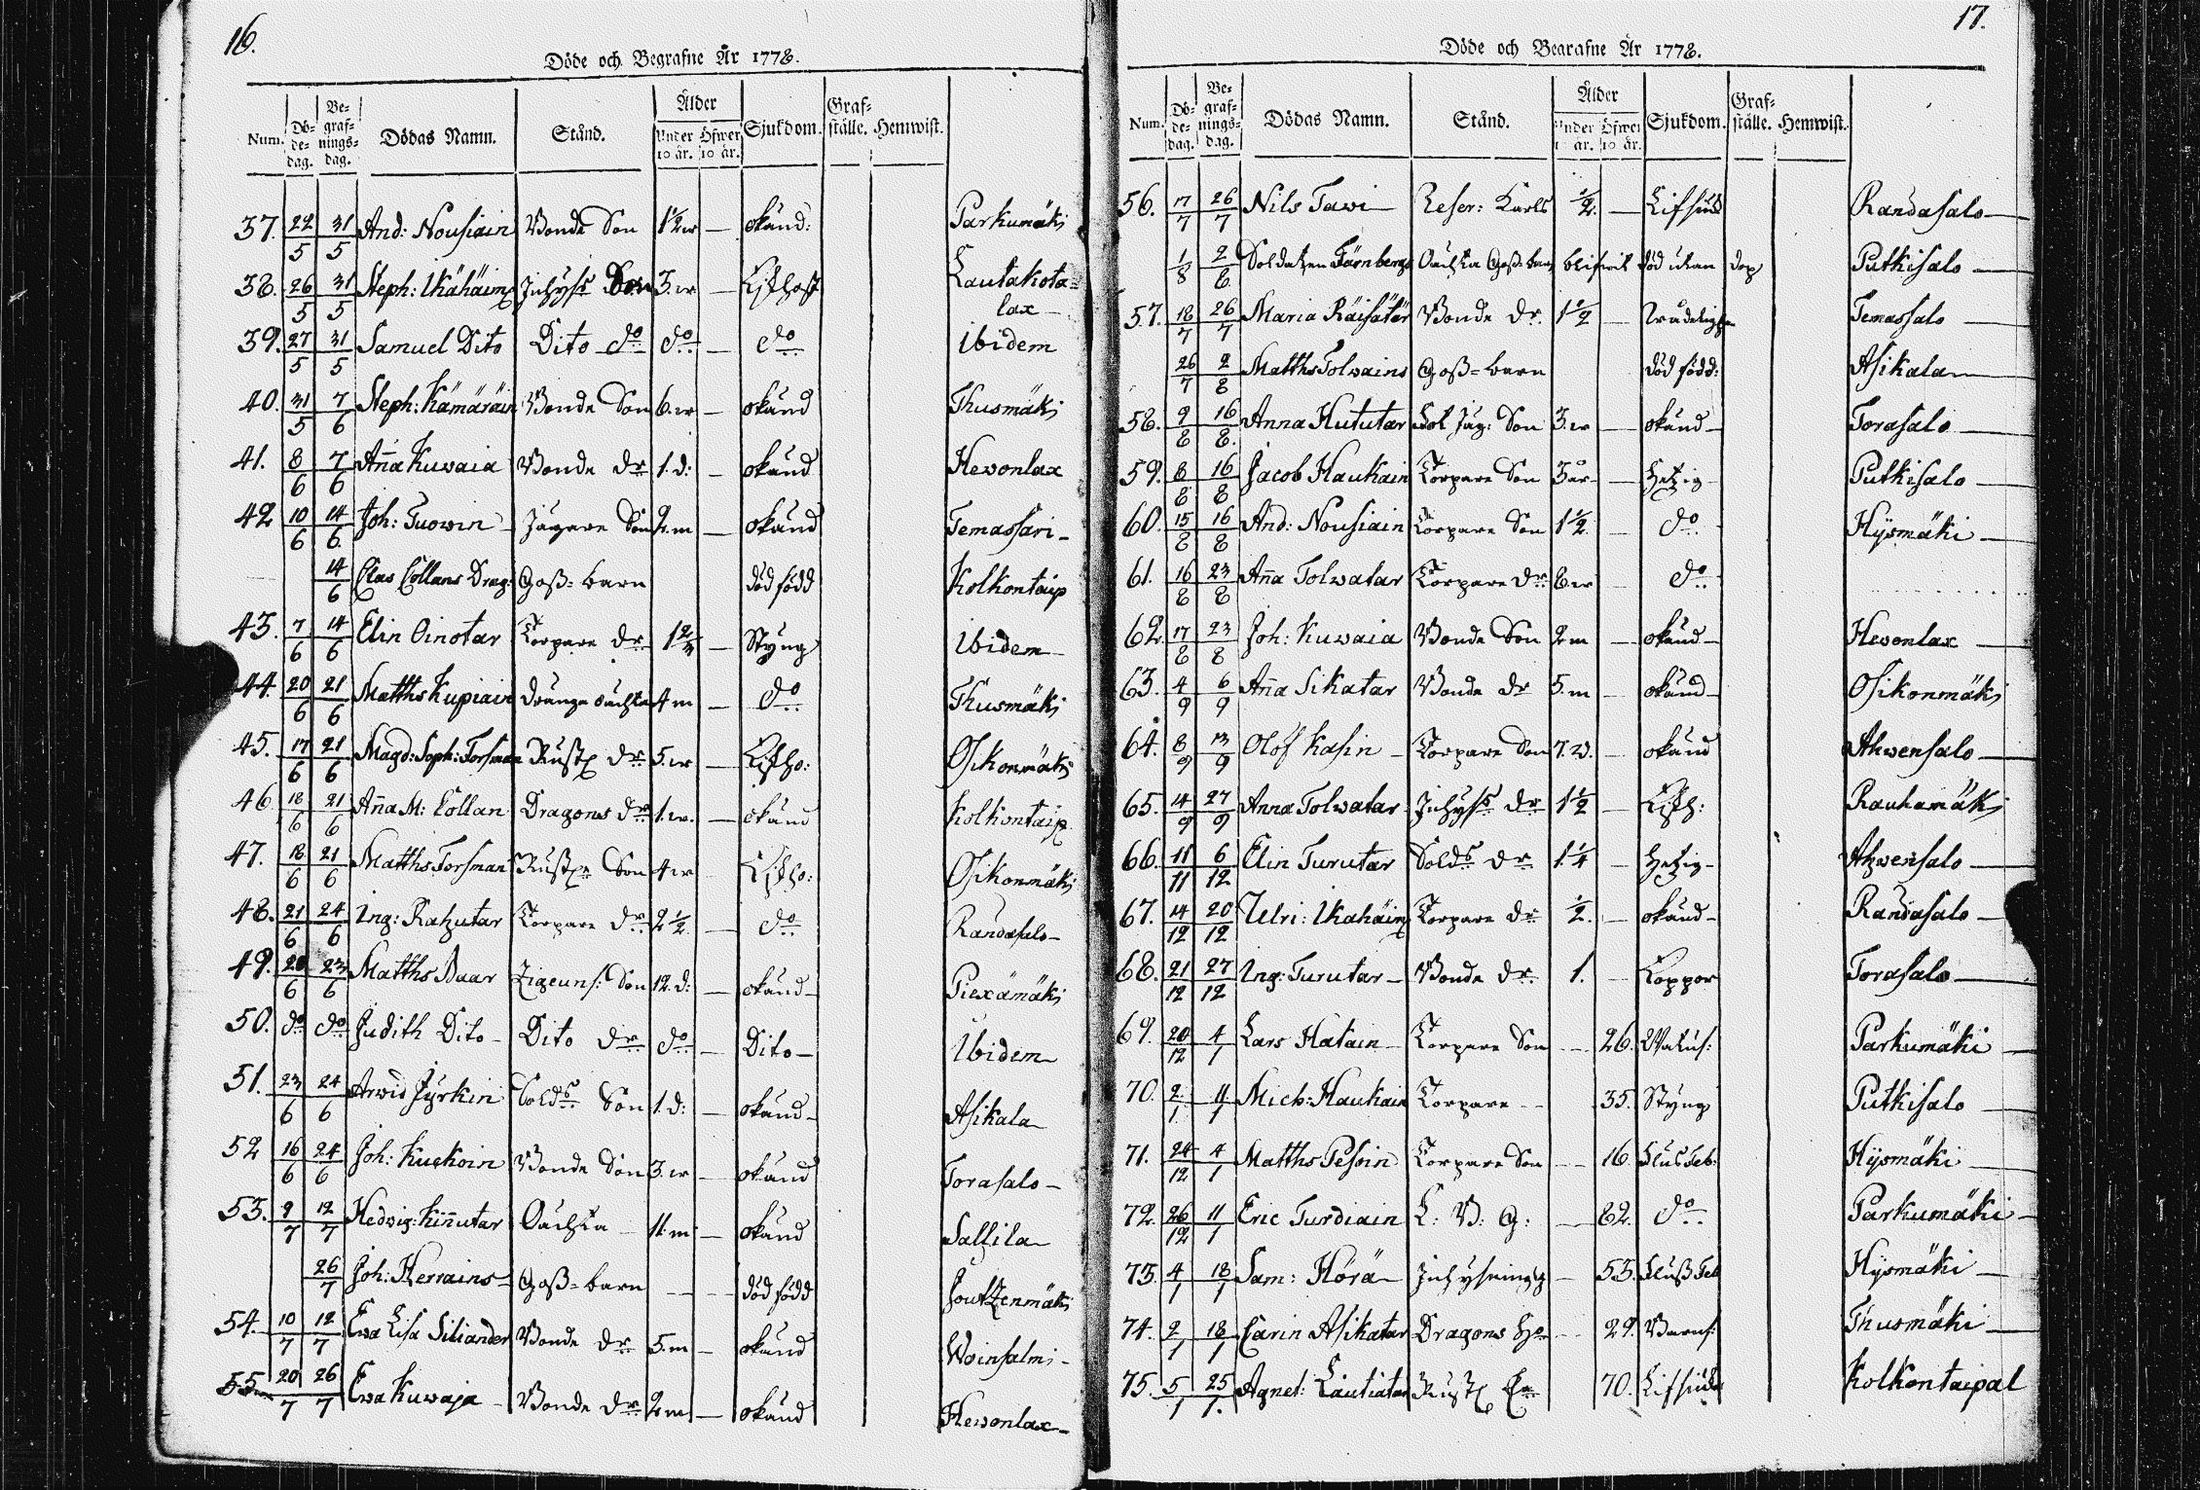 16.
Döde och Begrafne År 1778.
Num. Dö-de-dag. Be-graf-nings-dag. Dödas Namn. Stånd. Ålder Under 10 år. Öfwer 10 år. Sjukdom. Graf-ställe. Hemwist.
37. 22/5 31/5 And: Nousiain Bonde Son 1½ år — okänd: Parkumäki
38. 26/5 31/5 Steph: Ikähäinz Inhyss Son 3. år — Kikhost Lautakota=
lax
39. 27/5 31/5 Samuel Dito Dito do do — do Ibidem
40. 31/5 7/6 Steph: Kämäräin Bonde Son 6. år — okänd Ihusmäki
41. 8/6 7/6 Aña Kuwaia Bonde dr 1. d: — okänd Hewonlax
42 10/6 14/6 Joh: Tuowin Jägare Son 2. m — okänd Temassari
14/6 Clas Collans Drag: Goß=barn död född Kolkontaip
43. 7/6 14/6 Elin Oinotar Torpare dr 1⅔ — Styng Ibidem
44. 20/6 21/6 Matths Kupiain Drängz oächta 4 m — do Ihusmäki
45. 17/6 21/6 Magd: Soph: Forsman Rustz dr 5. år — Kikho: Osikonmäki
46. 18/6 21/6 Aña M: Collan Dragons dr 1. år. — okänd Kolkontaip
47. 18/6 21/6 Matths Forsman Rustz Son 4 år Kikho: Osikonmäki
48. 21/6 24/6 Ing: Rahutar Torpare dr 2½ — do Randasalo
49. 20/6 23/6 Matths Baar Zigeuns: Son 12. d: — okänd Piexämäki
50. do do Judith Dito Dito dr do — Dito Ibidem
51. 23/6 24/6 Arwid Jyrkin Solds Son 1. d: — okänd Asikala
52 16/6 24/6 Joh: Kuckoin Bonde Son 3. år — okänd Torasalo
53. 9/7 12/7 Hedwig: Kiñutar Oächta 11. m — okänd Sallila
26/7 Joh: Herrains Goß=barn — — död född Joutzenmäki
54. 10/7 12/7 Ewa Lisa Siliander Bonde dr 5. m — okänd Woinsalmi
55. 20/7 26/7 Ewa Kuwaja Bonde dr 2. m — okänd Hewonlax
17.
Döde och Begrafne År 1778.
Num. Dö-de-dag. Be-graf-nings-dag. Dödas Namn. Stånd. Ålder Under 10 år. Öfwer 10 år. Sjukdom. Graf-ställe. Hemwist.
56. 17/7 26/7 Nils Tawi Reser: Karls ½. — Lifsiuk Randasalo
1/8 2/8 Soldaten Färnbergs Oächta Goß=barn blifwit död utan dop Putkisalo
57. 18/7 26/7 Maria Räisätär Bonde dr. 1½ — Temassalo
26/7 2/8 Matths Tolwains Goß=barn död född: Asikala
58. 9/8 16/8. Anna Hututar Sol Jäg: Son 3. år — okänd Torasalo
59. 8/8 16/8 Jacob Haukain Torpare Son 3 år — Hetzig Putkisalo
60. 15/8 16/8 And: Nousiain Torpare Son 1½ — do Hÿsmäki
61. 16/8 23/8 Aña Tolwatar Torpare dr 8 år — do
62. 17/8 23/8 Joh: Kuwaia Bonde Son 2 m — okänd Hewonlax
63. 4/9 6/9 Aña Sikatar Bonde dr 5. m — okänd Osikonmäki
64. 8/9 13/9 Olof Kasin Torpare Son 7. d. — okänd Ahwensalo
65. 14/9 27/9 Anna Tolwatar Inhyss dr 1½ — Kikh: Rauhamäki
66. 11/11 6/12 Elin Turutar Solds dr 1¼ — Hetzig Ahwensalo
67. 14/12 20/12 Ulri: Ikähäinz Torpare dr ½. — okänd Randasalo
68. 21/12 27/12 Ing: Turutar Bonde dr. 1. — Koppor Torasalo
69. 20/12 4/1 Lars Hatain Torpare Son — 26. Parkumäki
70. 2/1 11/1 Mich: Haukain Torpare — 35. Styng Putkisalo
71. 24/12 4/1 Matths Pesoin Torpare Son — 16. Flusfeb: Hÿsmäki
72. 26/12 11/1 Eric Turdiain L: B: G: — 82. do Parkumäki
73. 4/1 18/1 Sam: Hörä Inhysning — 53. Flußfeb Hÿsmäki
74. 2/1 18/1 Carin Asikatar Dragons Ho — 29. Barns: Ihusmäki
75. 5/1 25/1. Agnet: Lautiatar Rustz Ea 70. Lifsiuk Kolkontaipal